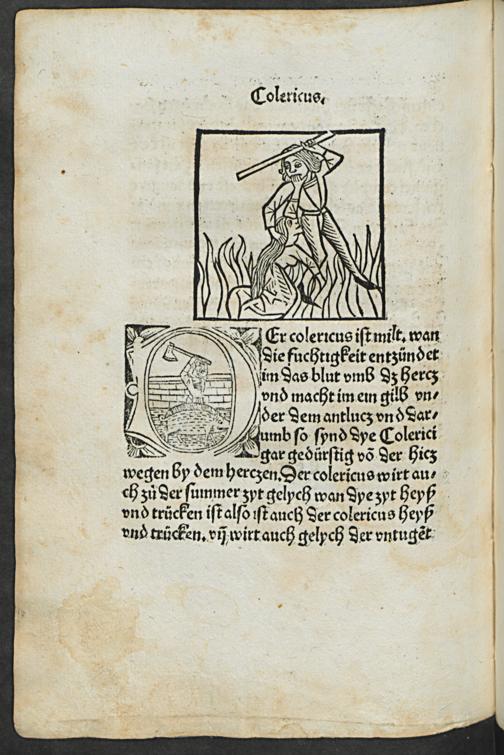 Colericus.
Er colericus ist milt. wan
die fuchtigkeit entzündet
im das blut vmb dz hercz
vnd macht im ein gilb vn⸗
der dem antlucz vnd dar⸗
umb so synd dye Colerici
gar gedürstig vō der hicz
wegen by dem herczen. Der colericus wirt au⸗
ch zů der summer zyt gelych wan dye zyt heyß
vnd trücken ist also ist auch der colericus heyß
vnd trücken. vñ wirt auch gelych der vntugēt